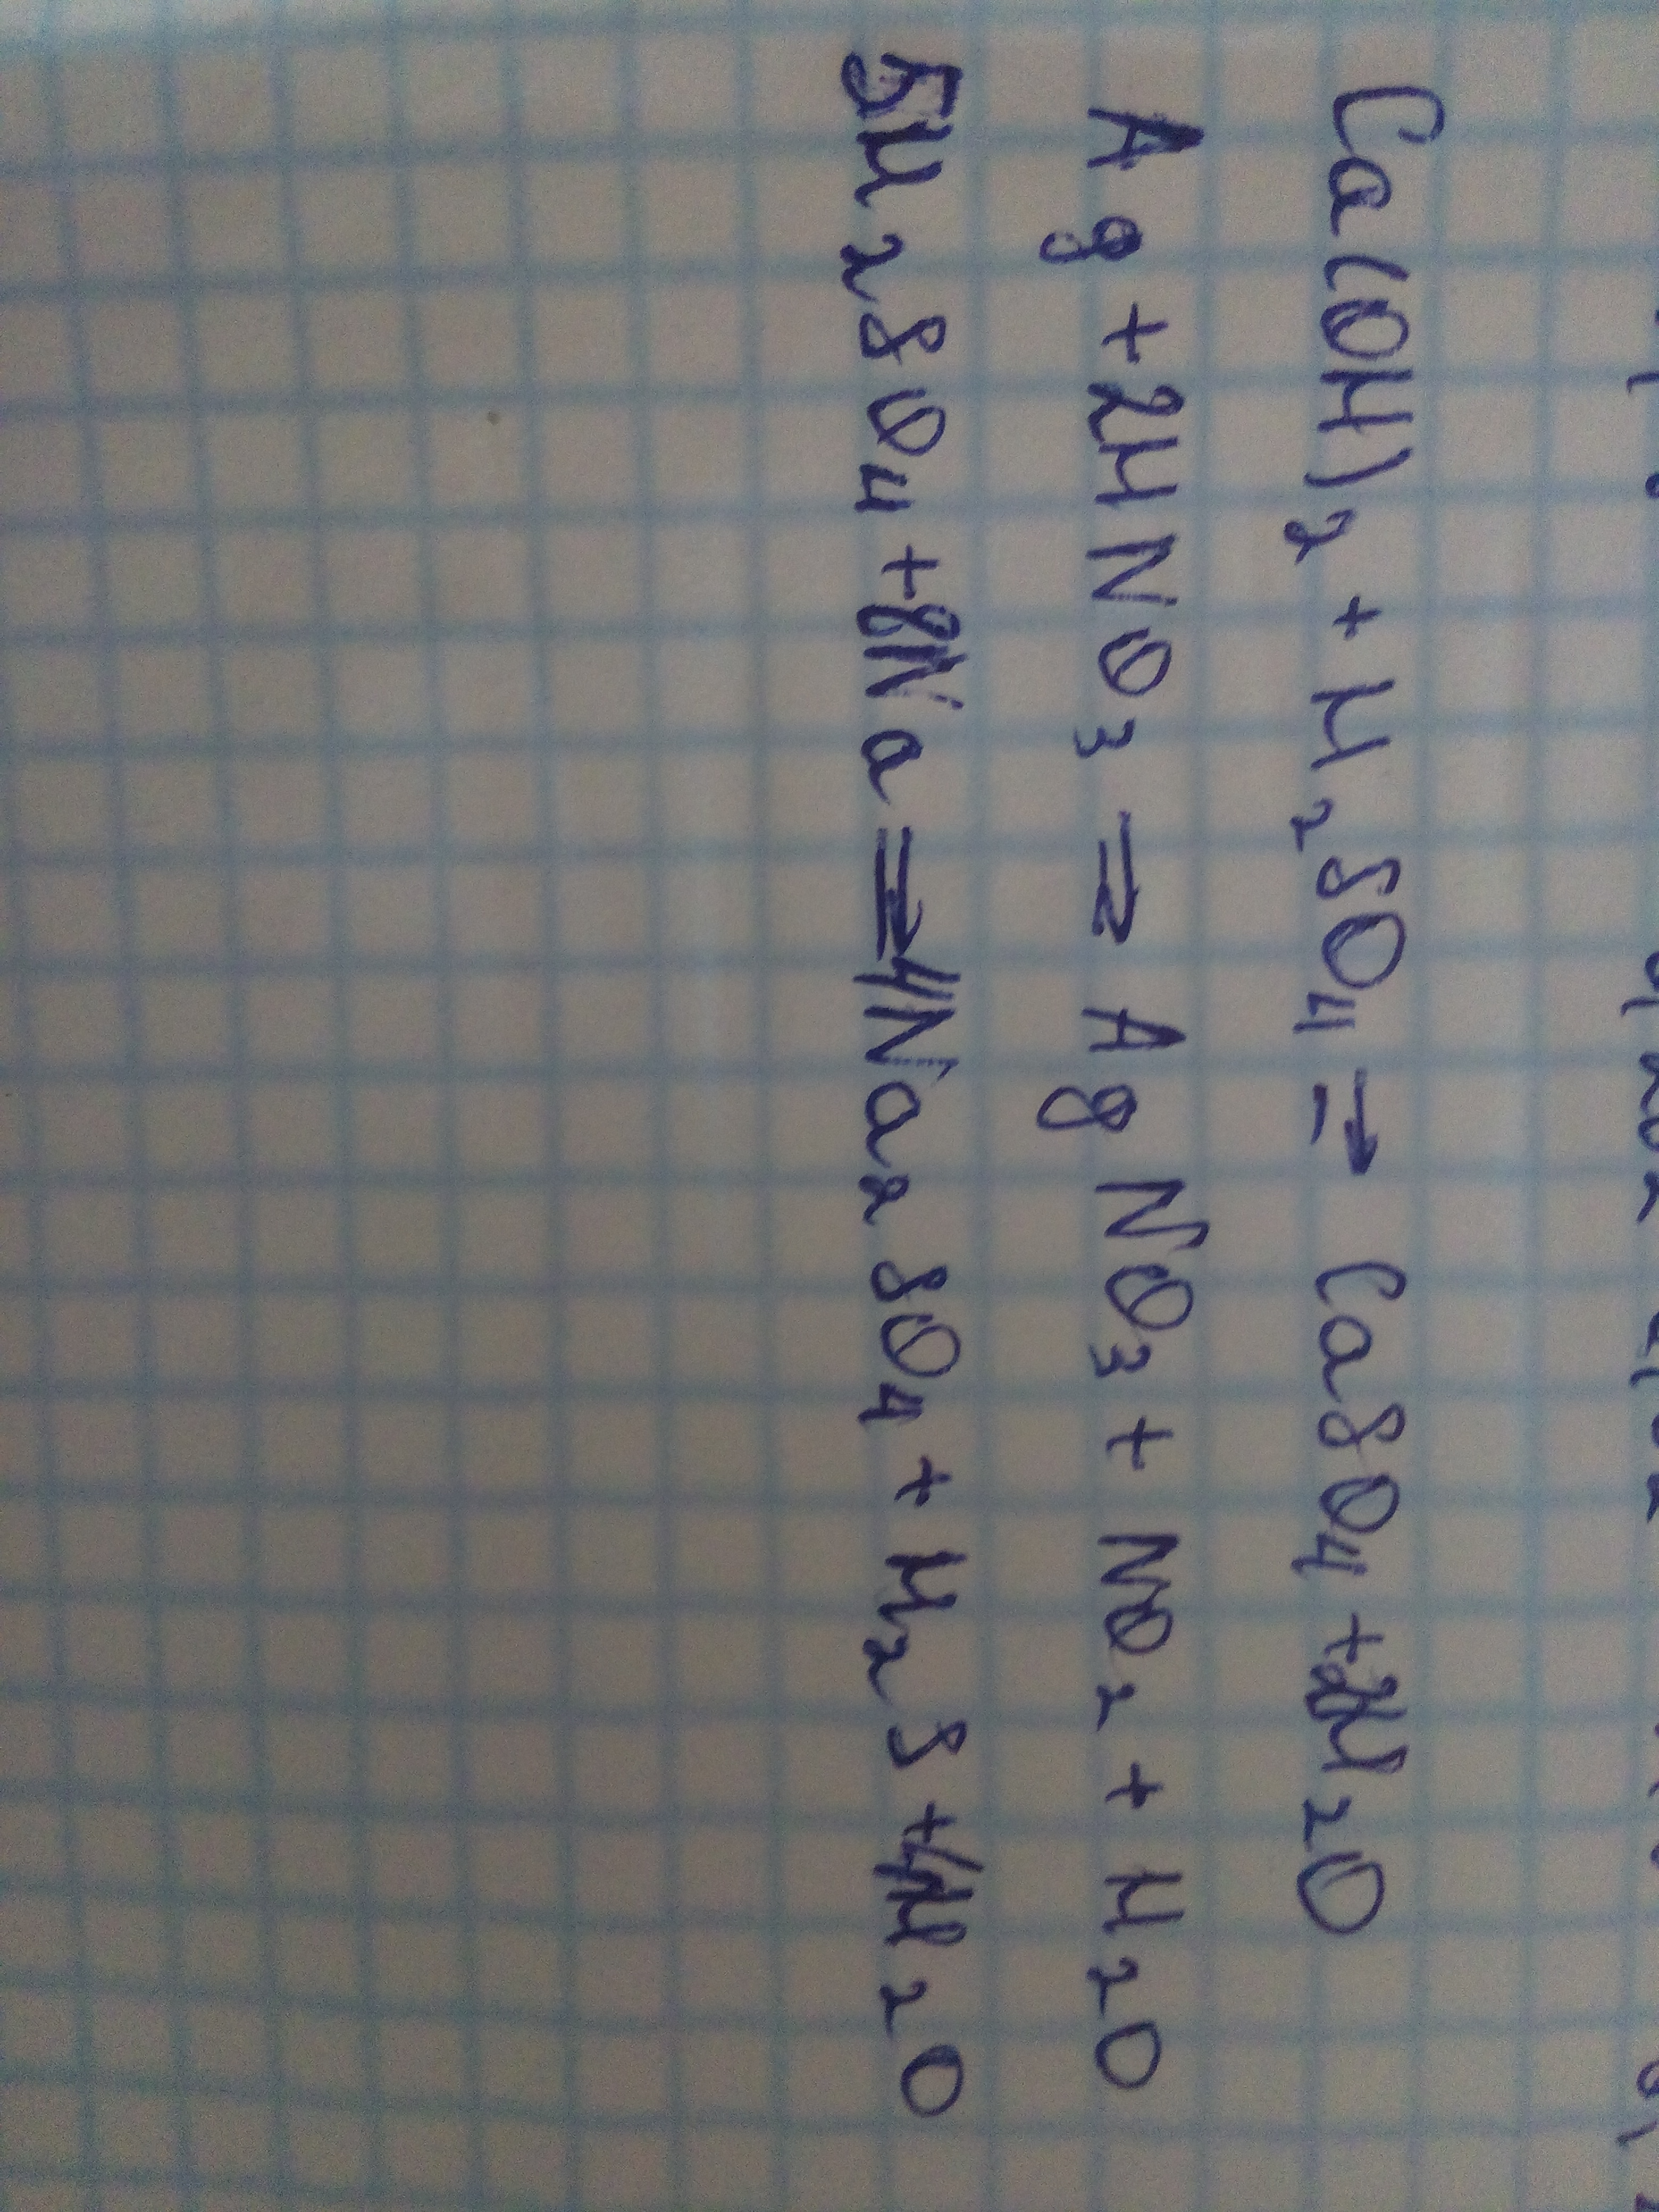 Ca(OH)₂ + H₂SO₄ ⇒ CaSO₄ + 2H₂O
Ag + 2HNO₃ ⇒ AgNO₃ + NO₂ + H₂O
5H₂SO₄ + 8Na ⇒ 4Na₂SO₄ + H₂S + 4H₂O